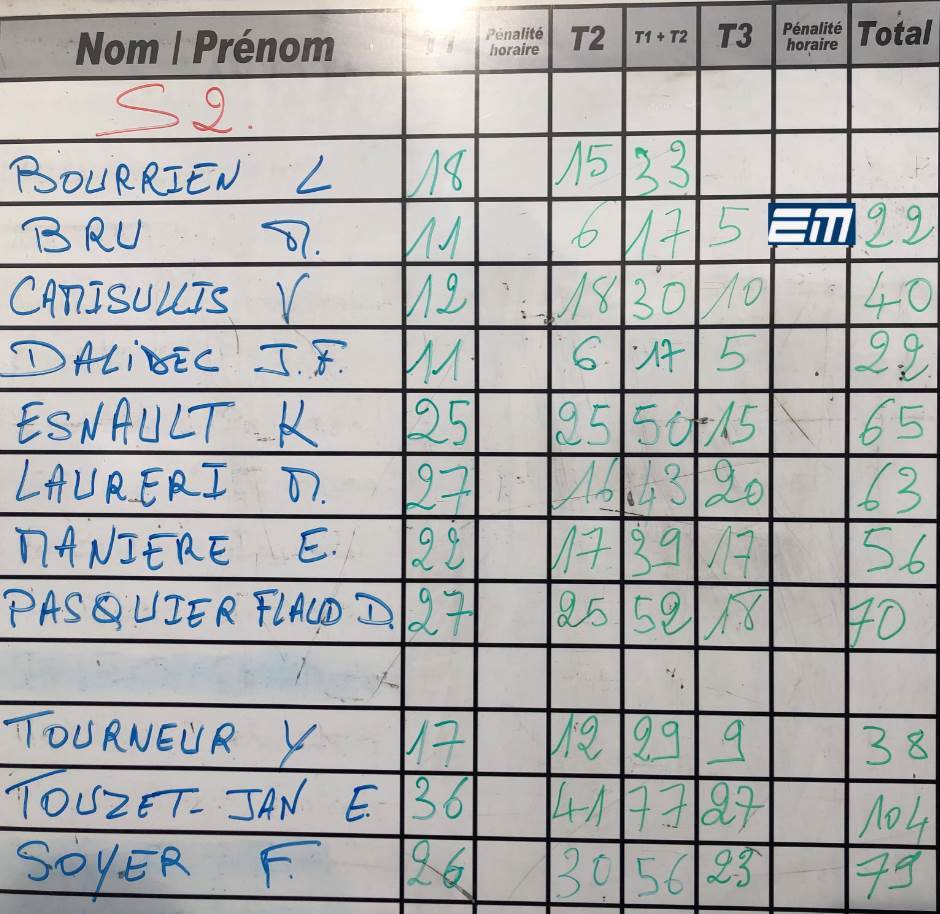 Nom / Prénom T1 Pénalité horaire T2 T1 + T2 T3 Pénalité horaire Total
S2.
BOURRIEN L 18 15 33
BRU M. 11 6 17 5 EM 22
CAMISULLIS V 12 18 30 10 40
DALIBEC J.F. 11 6 17 5 22
ESNAULT K 25 25 50 15 65
LAURERI M. 27 16 43 20 63
MANIERE E. 22 17 39 17 56
PASQUIER FLAUD D. 27 25 52 18 70
TOURNEUR Y 17 12 29 9 38
TOUZET-JAN E. 36 41 77 27 104
SOYER F. 26 30 56 23 79